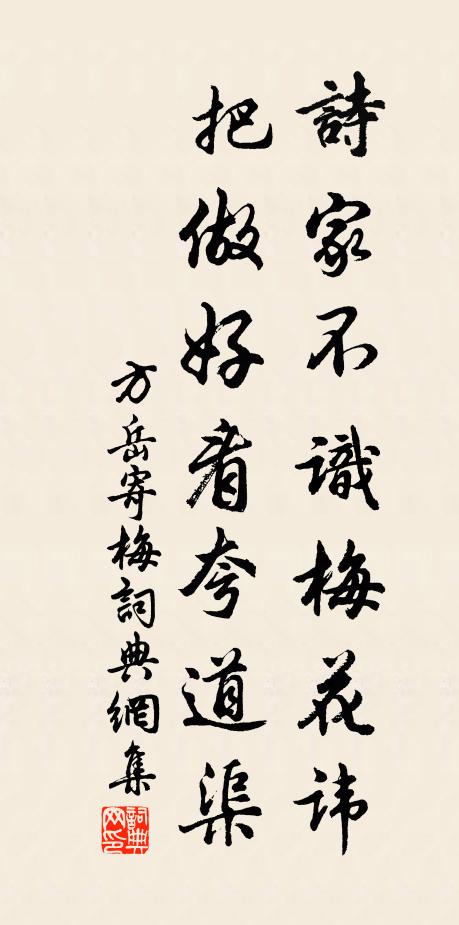 詩家不識梅花諱
把做好看夸道渠
方岳寄梅詞典網集
詞典網印